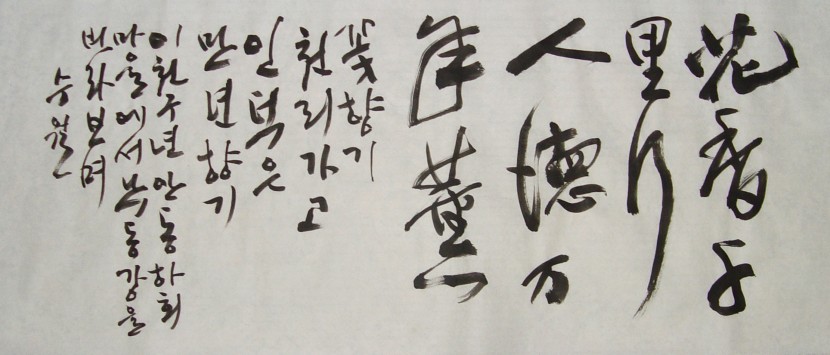 花香千
里行
人德万
年薰
꽃향기
천리가고
인덕은
만년향기
이천구년 안동하회
마을에서 낙동강을
바라보며
수월